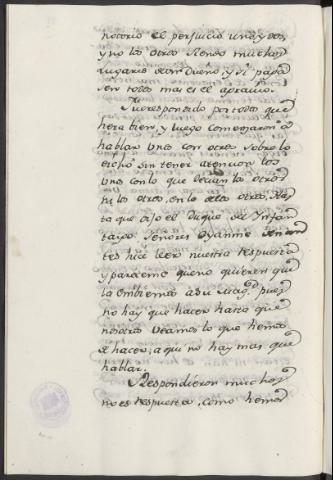 notorio el perjuicio unos y otros,
y no los otros siendo muchos
lugares de un Dueño, y si para
ser todos mas es el agravio.
Fue respondido por todos que
hera bien, y luego comenzaron a
hablar unos con otros sobre lo
dicho sin tener atencion los
unos con lo que decian los otros
ni los otros, en lo de los otros, has
ta que dijo el Duque de Ynfan
tazgo: Señores oyanme
tes hice leer nuestra respuesta
y pareceme que no quieren que
la embiemos a su Mag.d pues
no hay que hacer hasta que
nosotros veamos lo que hemos
de hacer; aqui no hay mas que
hablar.
Respondieron muchos
no es respuesta, como hemos